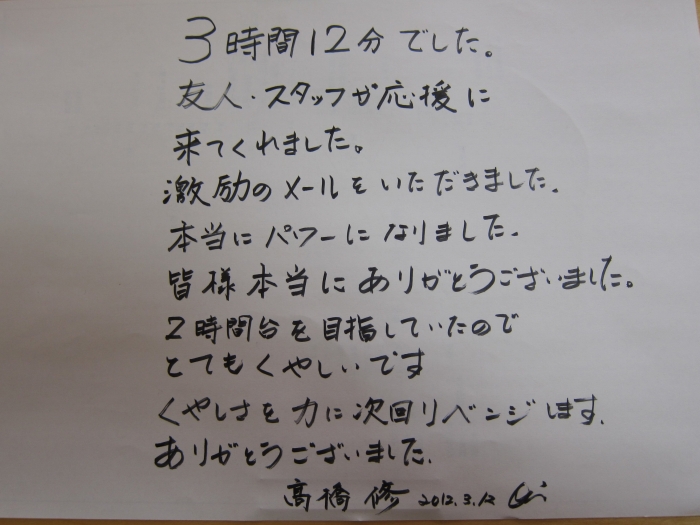 3時間12分でした。
友人・スタッフが応援に
来てくれました。
激励のメールをいただきました.
本当にパワーになりました.
皆様本当にありがとうございました。
2時間台を目指していたので
とてもくやしいです
くやしさを力に次回リベンジします.
ありがとうございました.
高橋修 2012.3.12